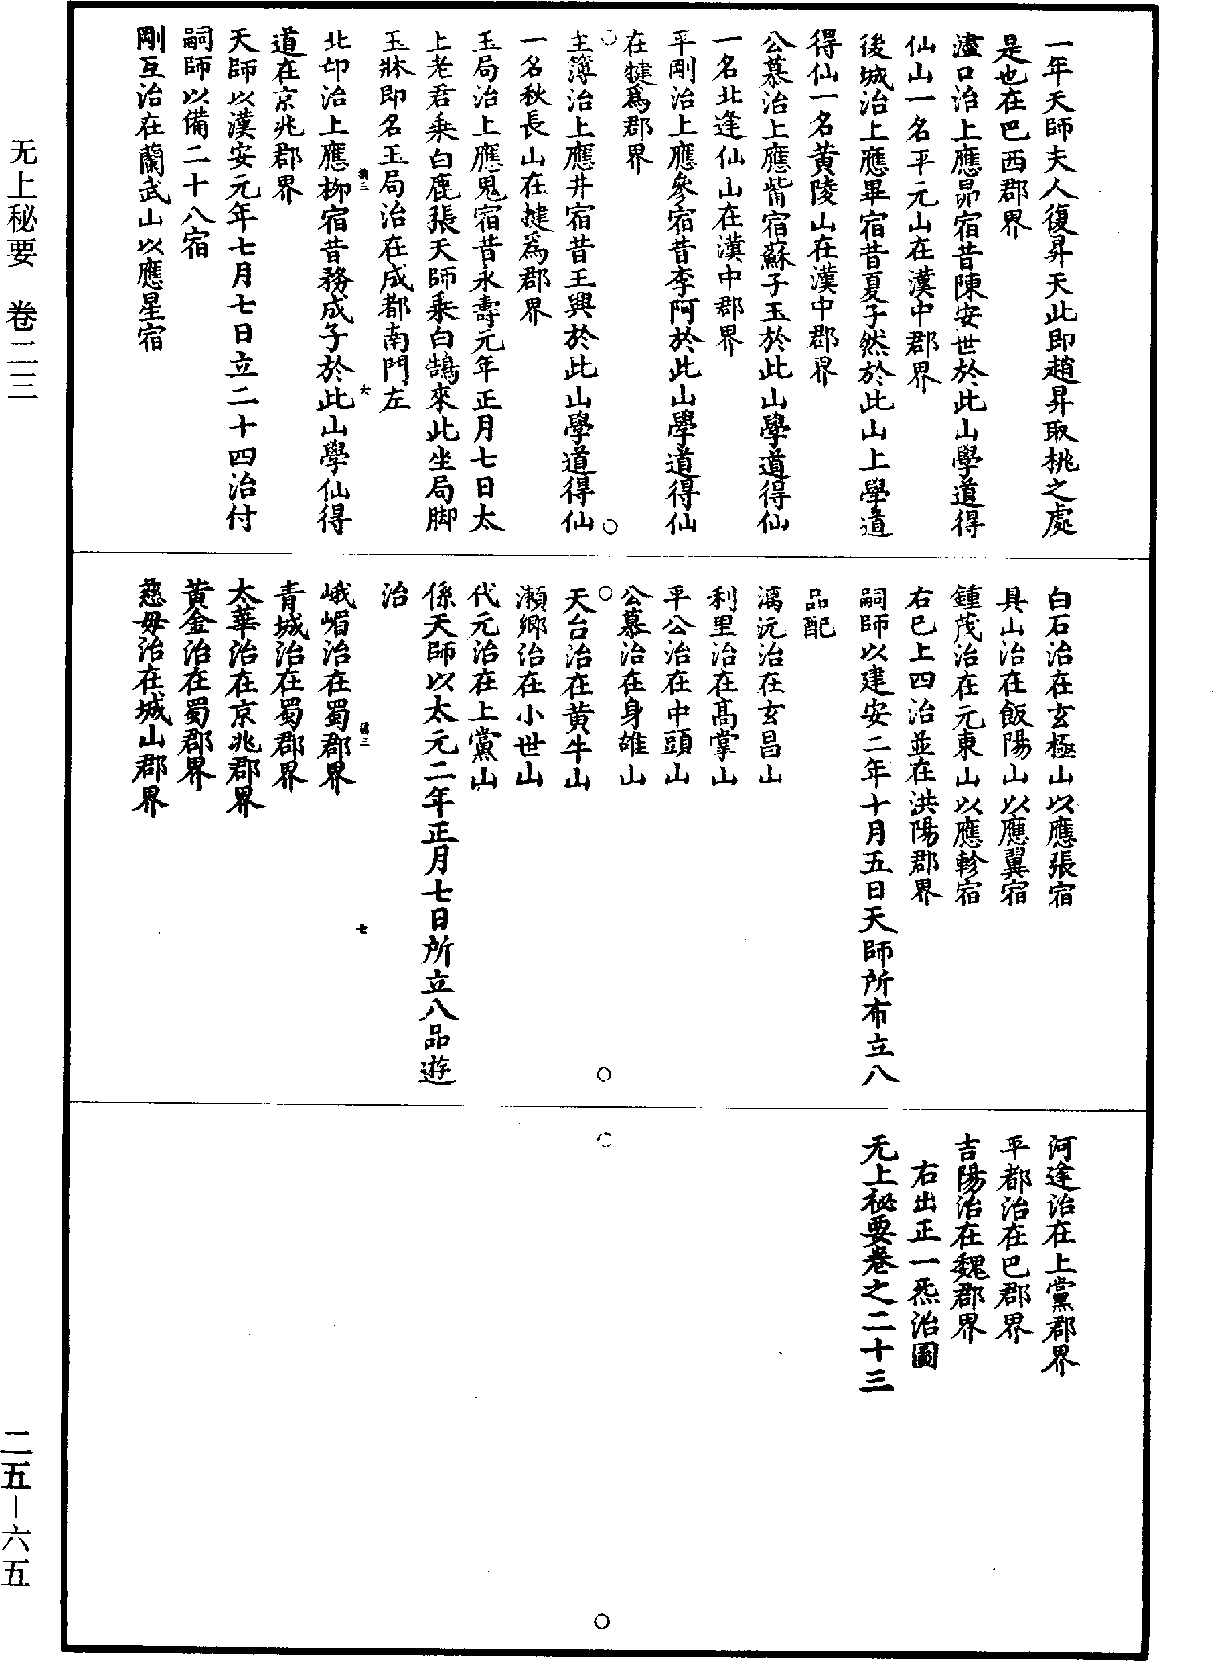 一年天師夫人復昇天此即趙昇取桃之處
是也在巴西郡界
濜口治上應昴宿昔陳安世於此山學道得
仙山一名平元山在漢中郡界
後城治上應畢宿昔夏子然於此山上學道
得仙一名黃陵山在漢中郡界
公慕治上應觜宿蘇子玉於此山學道得仙
一名北逢仙山在漢中郡界
平剛治上應參宿昔李阿於此山學道得仙
在犍爲郡界
主簿治上應井宿昔王興於此山學道得仙
一名秋長山在犍爲郡界
玉局治上應鬼宿昔永壽元年正月七日太
上老君乘白鹿張天師乘白鵠來此坐局脚
玉牀即名玉局治在成都南門左
北邙治上應柳宿昔務成子於此山學仙得
道在京兆郡界
天師以漢安元年七月七日立二十四治付
嗣師以備二十八宿
剛互治在蘭武山以應星宿
白石治在玄極山以應張宿
具山治在飯陽山以應翼宿
鍾茂治在元東山以應軫宿
右巳上四治並在洪陽郡界
嗣師以建安二年十月五日天師所布立八
品配
漓沅治在玄昌山
利里治在高掌山
平公治在中頭山
公慕治在身雄山
天台治在黃牛山
瀨鄉治在小世山
代元治在上黨山
係天師以太元二年正月七日所立八品遊
治
峨嵋治在蜀郡界
青城治在蜀郡界
太華治在京兆郡界
黃金治在蜀郡界
慈母治在城山郡界
河逢治在上黨郡界
平都治在巴郡界
吉陽治在魏郡界
右出正一炁治圖
无上祕要卷之二十三
无上秘要 卷二三
二五—六五
六
七